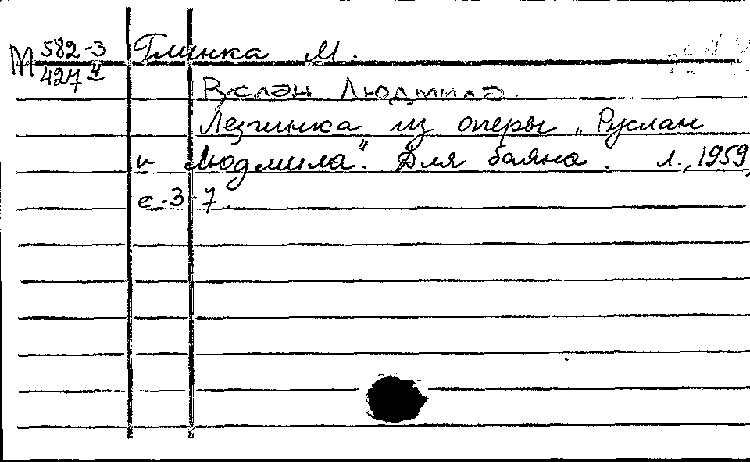 М 582-3
427 4
Глинка М.
Руслан Людмила.
Лезгинка из оперы „Руслан
и Людмила". Для баяна. Л., 1959,
с. 3-7.